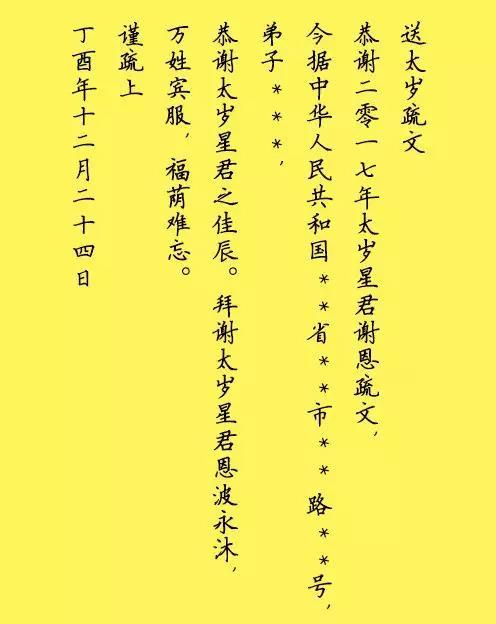 送太岁疏文
恭谢二零一七年太岁星君谢恩疏文，
今据中华人民共和国**省**市**路**号，
弟子***，
恭谢太岁星君之佳辰。拜谢太岁星君恩波永沐，
万姓宾服，福荫难忘。
谨疏上
丁酉年十二月二十四日